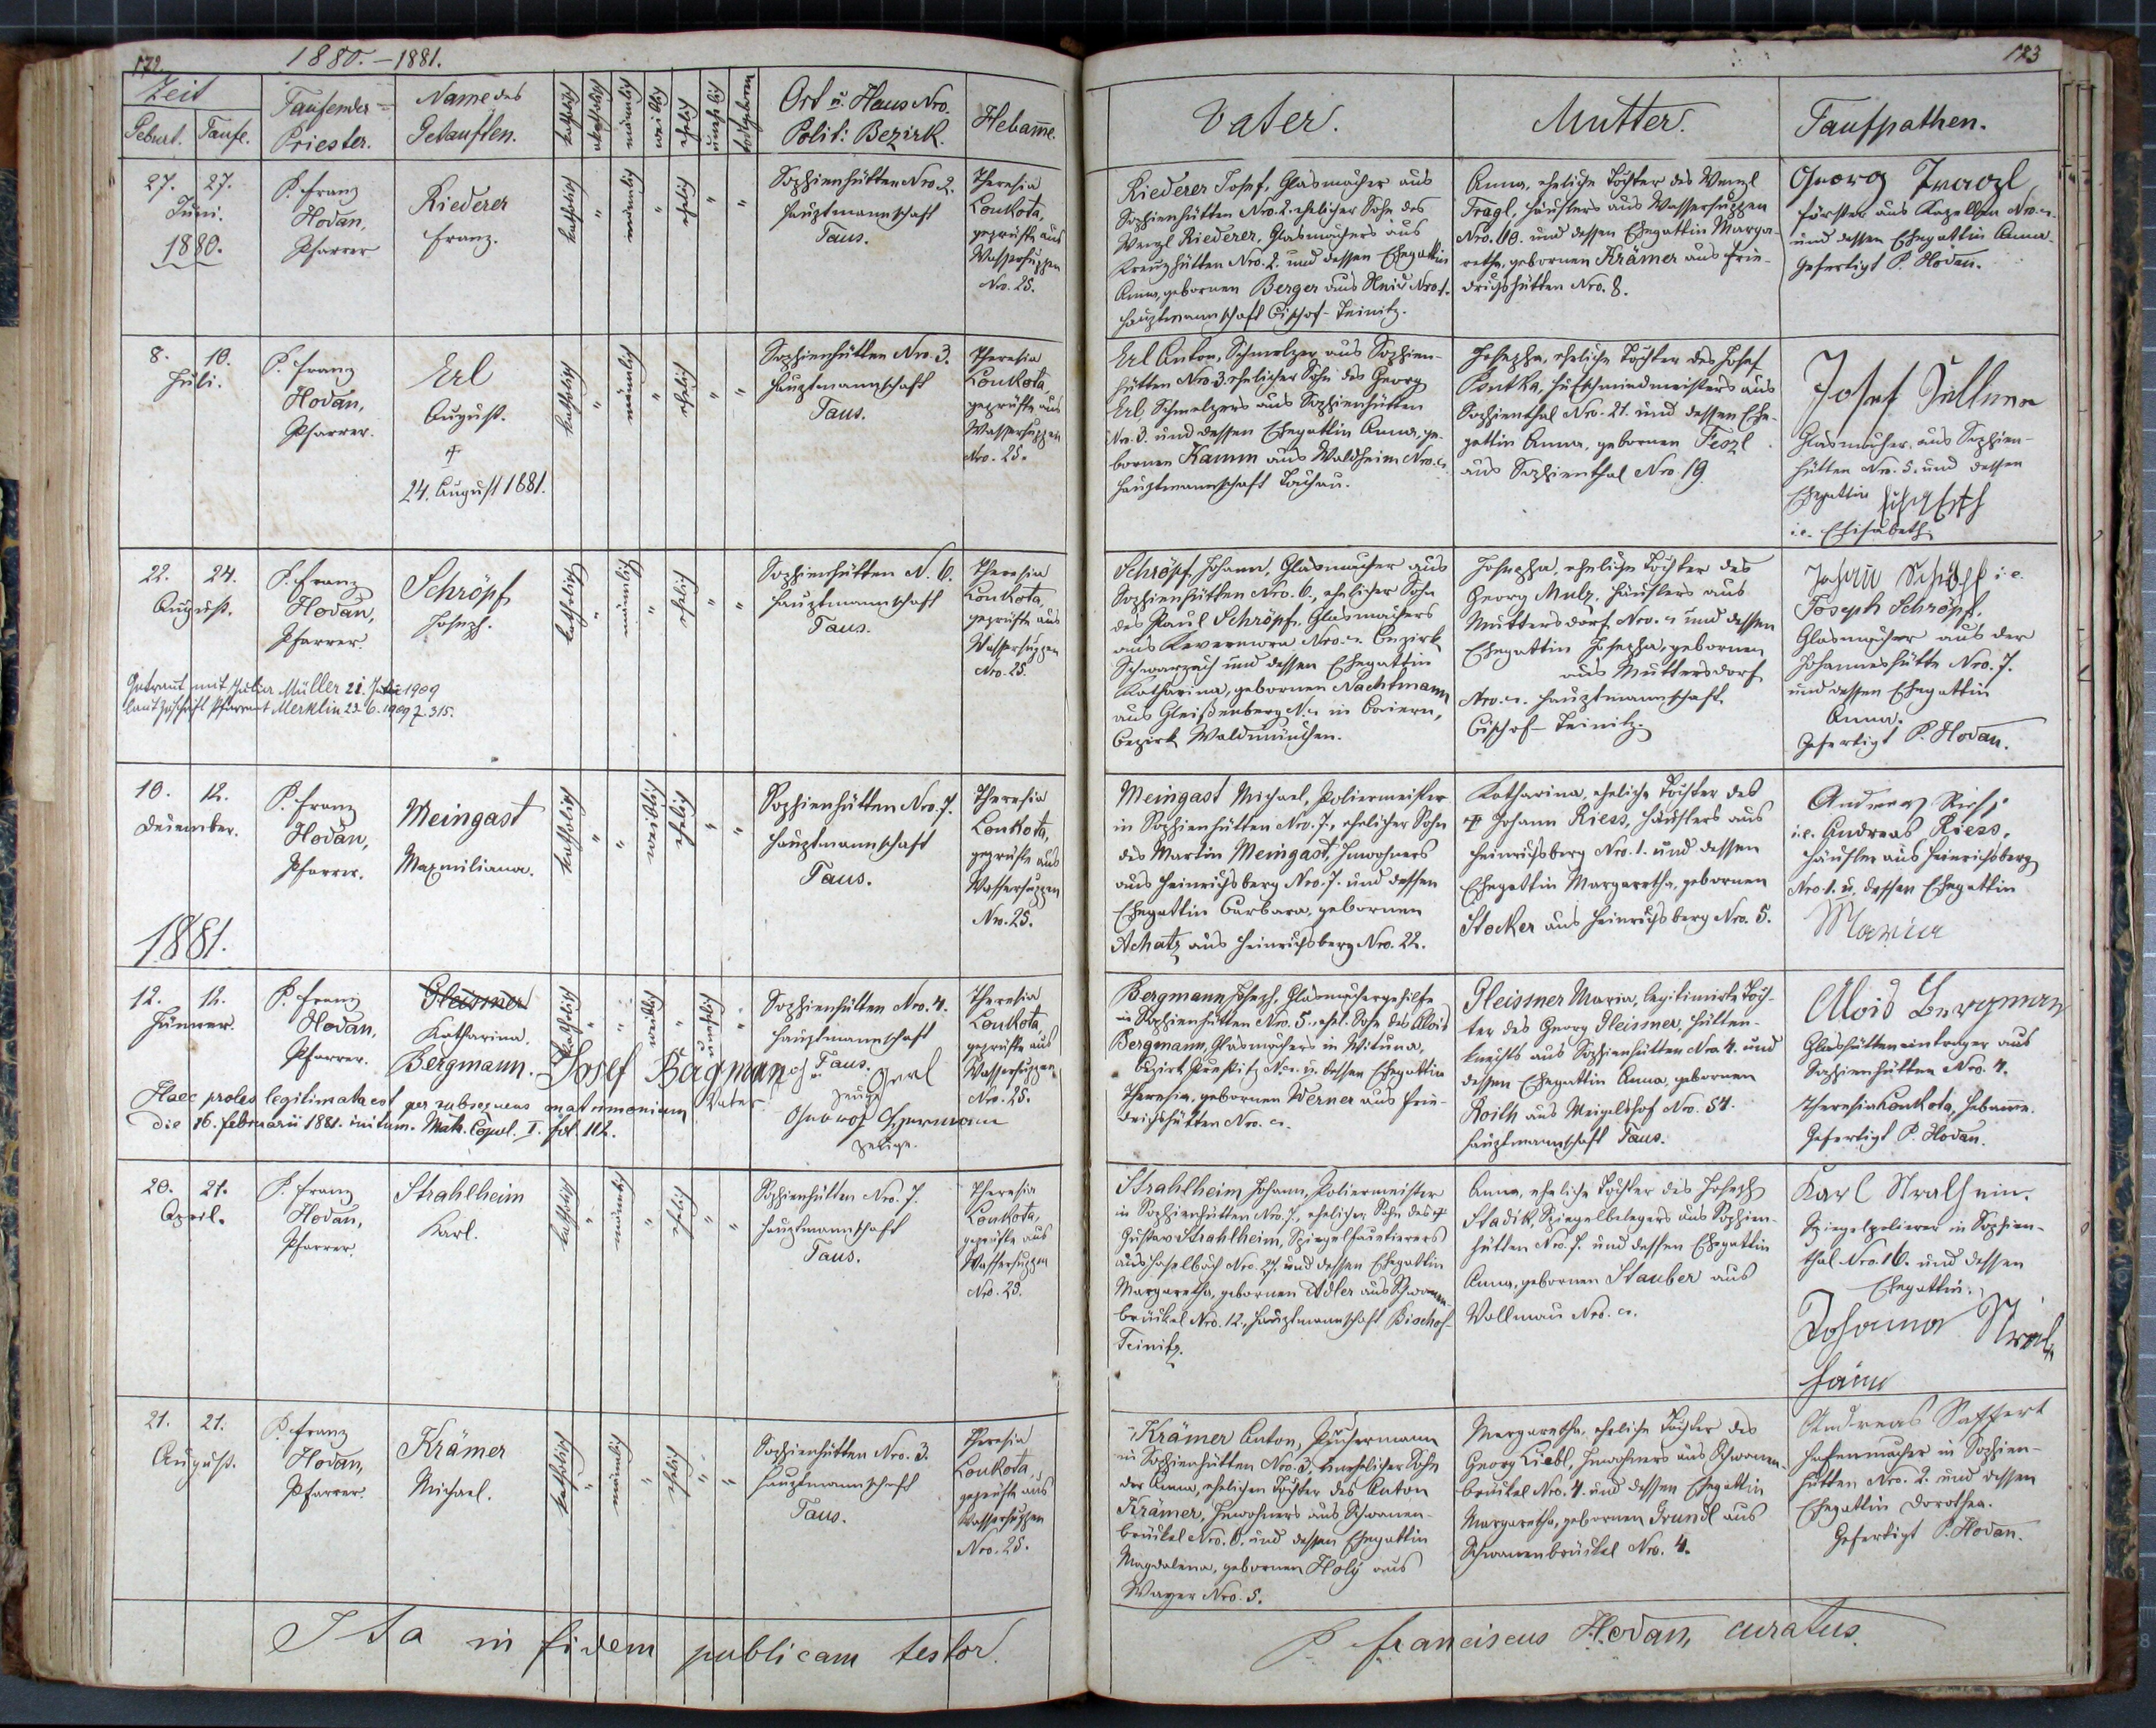 172.
1880. - 1881.
Zeit
Geburt. Taufe.
Taufender Priester.
Name des Getauften.
katholisch
männlich
weiblich
ehelich
unehelich
todtgeboren
Ort u. Haus Nro.
Polit: Bezirk.
Hebamme.
27. 27.
Juni.
1880.
P. Franz
Hodan,
Pfarrer
Riederer
Franz.
katholisch " männlich " ehelich " "
Sophienhütten Nro. 2.
Hauptmannschaft
Taus.
Theresia
Loukota,
geprüfte aus
Wassersuppen
Nro. 25.
8. 10.
Juli.
P. Franz
Hodan,
Pfarrer.
Erl
August.
†
24. August 1881.
katholisch " männlich " ehelich " "
Sophienhütten Nro. 3.
Hauptmannschaft
Taus.
Theresia
Loukota
geprüfte aus
Wassersuppen
Nro. 25.
22. 24.
August.
P. Franz
Hodan,
Pfarrer.
Schröpf
Joseph.
katholisch " männlich " ehelich " "
Sophienhütten N. 6.
Hauptmannschaft
Taus.
Theresia
Loukota,
geprüfte aus
Wassersuppen
Nro. 25.
Getraut mit Julia Müller 21. 1909
laut Zuschrift Pfarramt Merklin 23. 6. 1909 Z. 315.
10. 12.
December.
P. Franz
Hodan,
Pfarrer.
Meingast
Maximiliana.
katholisch " " weiblich ehelich " "
Sophienhütten Nro. 7.
Hauptmannschaft
Taus.
Theresia
Loukota,
geprüfte aus
Wassersuppen
Nro. 25.
1881.
12. 12.
Jänner.
P. Franz
Hodan,
Pfarrer.
Gleissner
Katharina.
Bergmann.
katholisch " " weiblich " unehelich "
Sophienhütten Nro. 4.
Hauptmannschaft
Taus.
Theresia
Loukota,
geprüfte aus
Wassersuppen
Nro. 25.
Josef Bagman
Vater
Zeuge
Haec proles legitimata est per subsequens matrimonium
die 16. Februarii 1881. initum. Matr. Copul. I. fol. 112.
Zeuge.
20. 21.
April.
P. Franz
Hodan,
Pfarrer.
Strahlheim
Karl.
katholisch " männlich " ehelich " "
Sophienhütten Nro. 7.
Hauptmannschaft
Taus.
Theresia
Loukota,
geprüfte aus
Wassersuppen
Nro. 25.
21. 21.
August.
P. Franz
Hodan,
Pfarrer
Krämer
Michael.
katholisch " männlich " ehelich " "
Sophienhütten Nro. 3.
Hauptmannschaft
Taus.
Theresia
Loukota,
geprüfte aus
Wassersuppen
Nro. 25.
Ita in fidem publicam testor.
123
Vater.
Mutter.
Taufpathen.
Riederer Josef, Glasmacher aus
Sophienhütten Nro. 2. ehelicher Sohn des
Wenzl Riederer, Glasmachers aus
Kreuzhütten Nro. 2. und dessen Ehegattin
Anna, gebornen Berger aus Nro. 1.
Hauptmannschaft Bischof-Teinitz.
Anna, eheliche Tochter des Wenzl
Tragl, Häuslers aus Wassersuppen
Nro. 48. und dessen Ehegattin Marga-
retha, gebornen Krämer aus Frie-
drichshütten Nro. 8.
Georg Tragl
Förster aus Nro.
und dessen Ehegattin Anna.
Gefertigt P. Hodan.
Erl Anton, Schmelzer aus Sophien-
hütten Nro 3. ehelicher Sohn des Georg
Erl Schmelzers aus Sophienhütten
Nr. 3. und dessen Ehegattin Anna, ge-
bornen Kamm aus Waldheim Nro.
Hauptmannschaft Tachau.
Josepha, eheliche Tochter des Josef
Hufschmiedmeisters aus
Sophienthal Nro. 21. und dessen Ehe-
gattin Anna, gebornen Feszl
aus Sophienthal Nro. 19.
Josef
Glasmacher aus Sophien-
hütten Nro. 5. und dessen
Ehegattin
i.e. Elisabeth
Schröpf Johann, Glasmacher aus
Sophienhütten Nro. 6., ehelicher Sohn
des Paul Schröpf, Glasmachers
aus Nro. Bezirk
Schwarzach und dessen Ehegattin
Katharina, gebornen Nachtmann
aus Gleißenberg N. in Baiern,
Bezirk Waldmünchen.
Josepha, eheliche Tochter des
Georg Mulz, Häuslers aus
Muttersdorf Nro. und dessen
Ehegattin Josepha, gebornen
aus Muttersdorf
Nro. Hauptmannschaft
Bischof-Teinitz.
i.e.
Joseph Schröpf.
Glasmacher aus der
Johanneshütte Nro. 7.
und dessen Ehegattin
Anna.
Gefertigt P. Hodan.
Meingast Michael, Poliermeister
in Sophienhütten Nro. 7., ehelicher Sohn
des Martin Meingast, Inwohners
aus Heinrichsberg Nro. 7. und dessen
Ehegattin Barbara, gebornen
Achatz aus Heinrichsberg Nro. 22.
Katharina, eheliche Tochter des
† Johann Riess, Häuslers aus
Heinrichsberg Nro. 1. und dessen
Ehegattin Margaretha, gebornen
Stocker aus Heinrichsberg Nro. 5.
Andreas Riess
i.e. Andreas Riess,
Häusler aus Heinrichsberg
Nro. 1. u. dessen Ehegattin
Maria
Bergmann Joseph, Glasmachergehilfe
in Sophienhütten Nro. 5., ehel. Sohn des Alois
Bergmann, Glasmachers in Wituna,
Bezirk Nro. u. dessen Ehegattin
Theresia, gebornen Werner aus Frie-
drichshütten Nro.
Gleissner Maria, legitimirte Toch-
ter des Georg Gleissner, Hütten-
knechts aus Sophienhütten Nro. 4. und
dessen Ehegattin Anna, gebornen
Roith aus Meigelshof Nro. 54.
Hauptmannschaft Taus.
Alois Bergman
Glashütteneintrager aus
Sophienhütten Nro. 4.
Theresia Loukota, Hebamme.
Gefertigt P. Hodan.
Strahlheim Johann, Poliermeister
in Sophienhütten Nro. 7., ehelicher Sohn des †
Gustav Strahlheim, Spiegelfacetierers
aus Haselbach Nro. 27. und dessen Ehegattin
Margaretha, gebornen Adler aus Schwanen-
brückel Nro. 12., Hauptmannschaft Bischof-
Teinitz.
Anna, eheliche Tochter des Joseph
Stadik, Spiegelbelegers aus Sophien-
hütten Nro. 7. und dessen Ehegattin
Anna, gebornen Stauber aus
Vollmau Nro.
Karl Stralheim.
Spiegelpolierer in Sophien-
thal Nro. 16. und dessen
Ehegattin.
Johanna Stral
heim
Krämer Anton,
in Sophienhütten Nro. 3, unehelicher Sohn
der Anna, ehelichen Tochter des Anton
Krämer, Inwohners aus Schwanen-
brückel Nro. 6. und dessen Ehegattin
Magdalena, gebornen Holý aus
Wayer Nro. 5.
Margaretha, eheliche Tochter des
Georg Liebl, Inwohners aus Schwanen-
brückel Nro. 4. und dessen Ehegattin
Margaretha, gebornen Grundl aus
Schwanenbrückel Nro. 4.
Andreas Saffert
Hafenmacher in Sophien-
hütten Nro. 2. und dessen
Ehegattin Dorothea.
Gefertigt P. Hodan.
P. Franciscus Hodan, curatus.